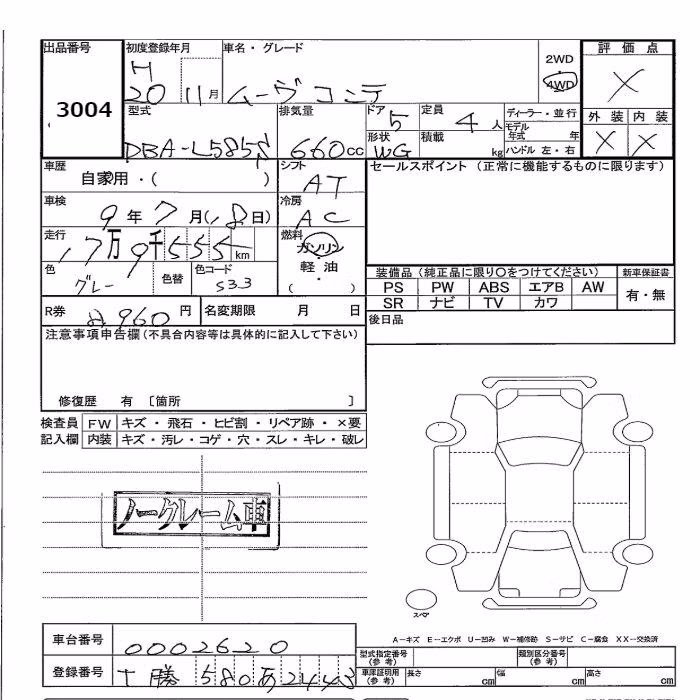 出品番号 初度登録年月 車名・グレード 2WD 評価点
3004 H 20 11月 ムーヴコンテ 4WD ×
型式 排気量 ドア 5 定員 4人 ディーラー・並行 外装 内装
DBA-L585S 660cc 形状 WG 積載 kg モデル年式 年 ハンドル 左・右 × ×
車歴 自家用・( ) シフト AT セールスポイント(正常に機能するものに限ります)
車検 9年7月(18日) 冷房 AC
走行 17万9千555km 燃料 ガソリン・軽油・( )
色 グレー 色替 色コード S33
装備品(純正品に限り○をつけてください) 新車保証書
PS PW ABS エアB AW 有・無
SR ナビ TV カワ
R券 円 名変期限 月 日 後日品
注意事項申告欄(不具合内容等は具体的に記入して下さい)
修復歴 有 〔箇所 〕
検査員 FW キズ・飛石・ヒビ割・リペア跡・×要
記入欄 内装 キズ・汚レ・コゲ・穴・スレ・キレ・破レ
ノークレーム車
スペア
A-キズ E-エクボ U-凹み W-補修跡 S-サビ C-腐食 XX-交換済
車台番号 0002620 型式指定番号(参考) 類別区分番号(参考)
登録番号 十勝 580 あ 車庫証明用(参考) 長さ cm 幅 cm 高さ cm